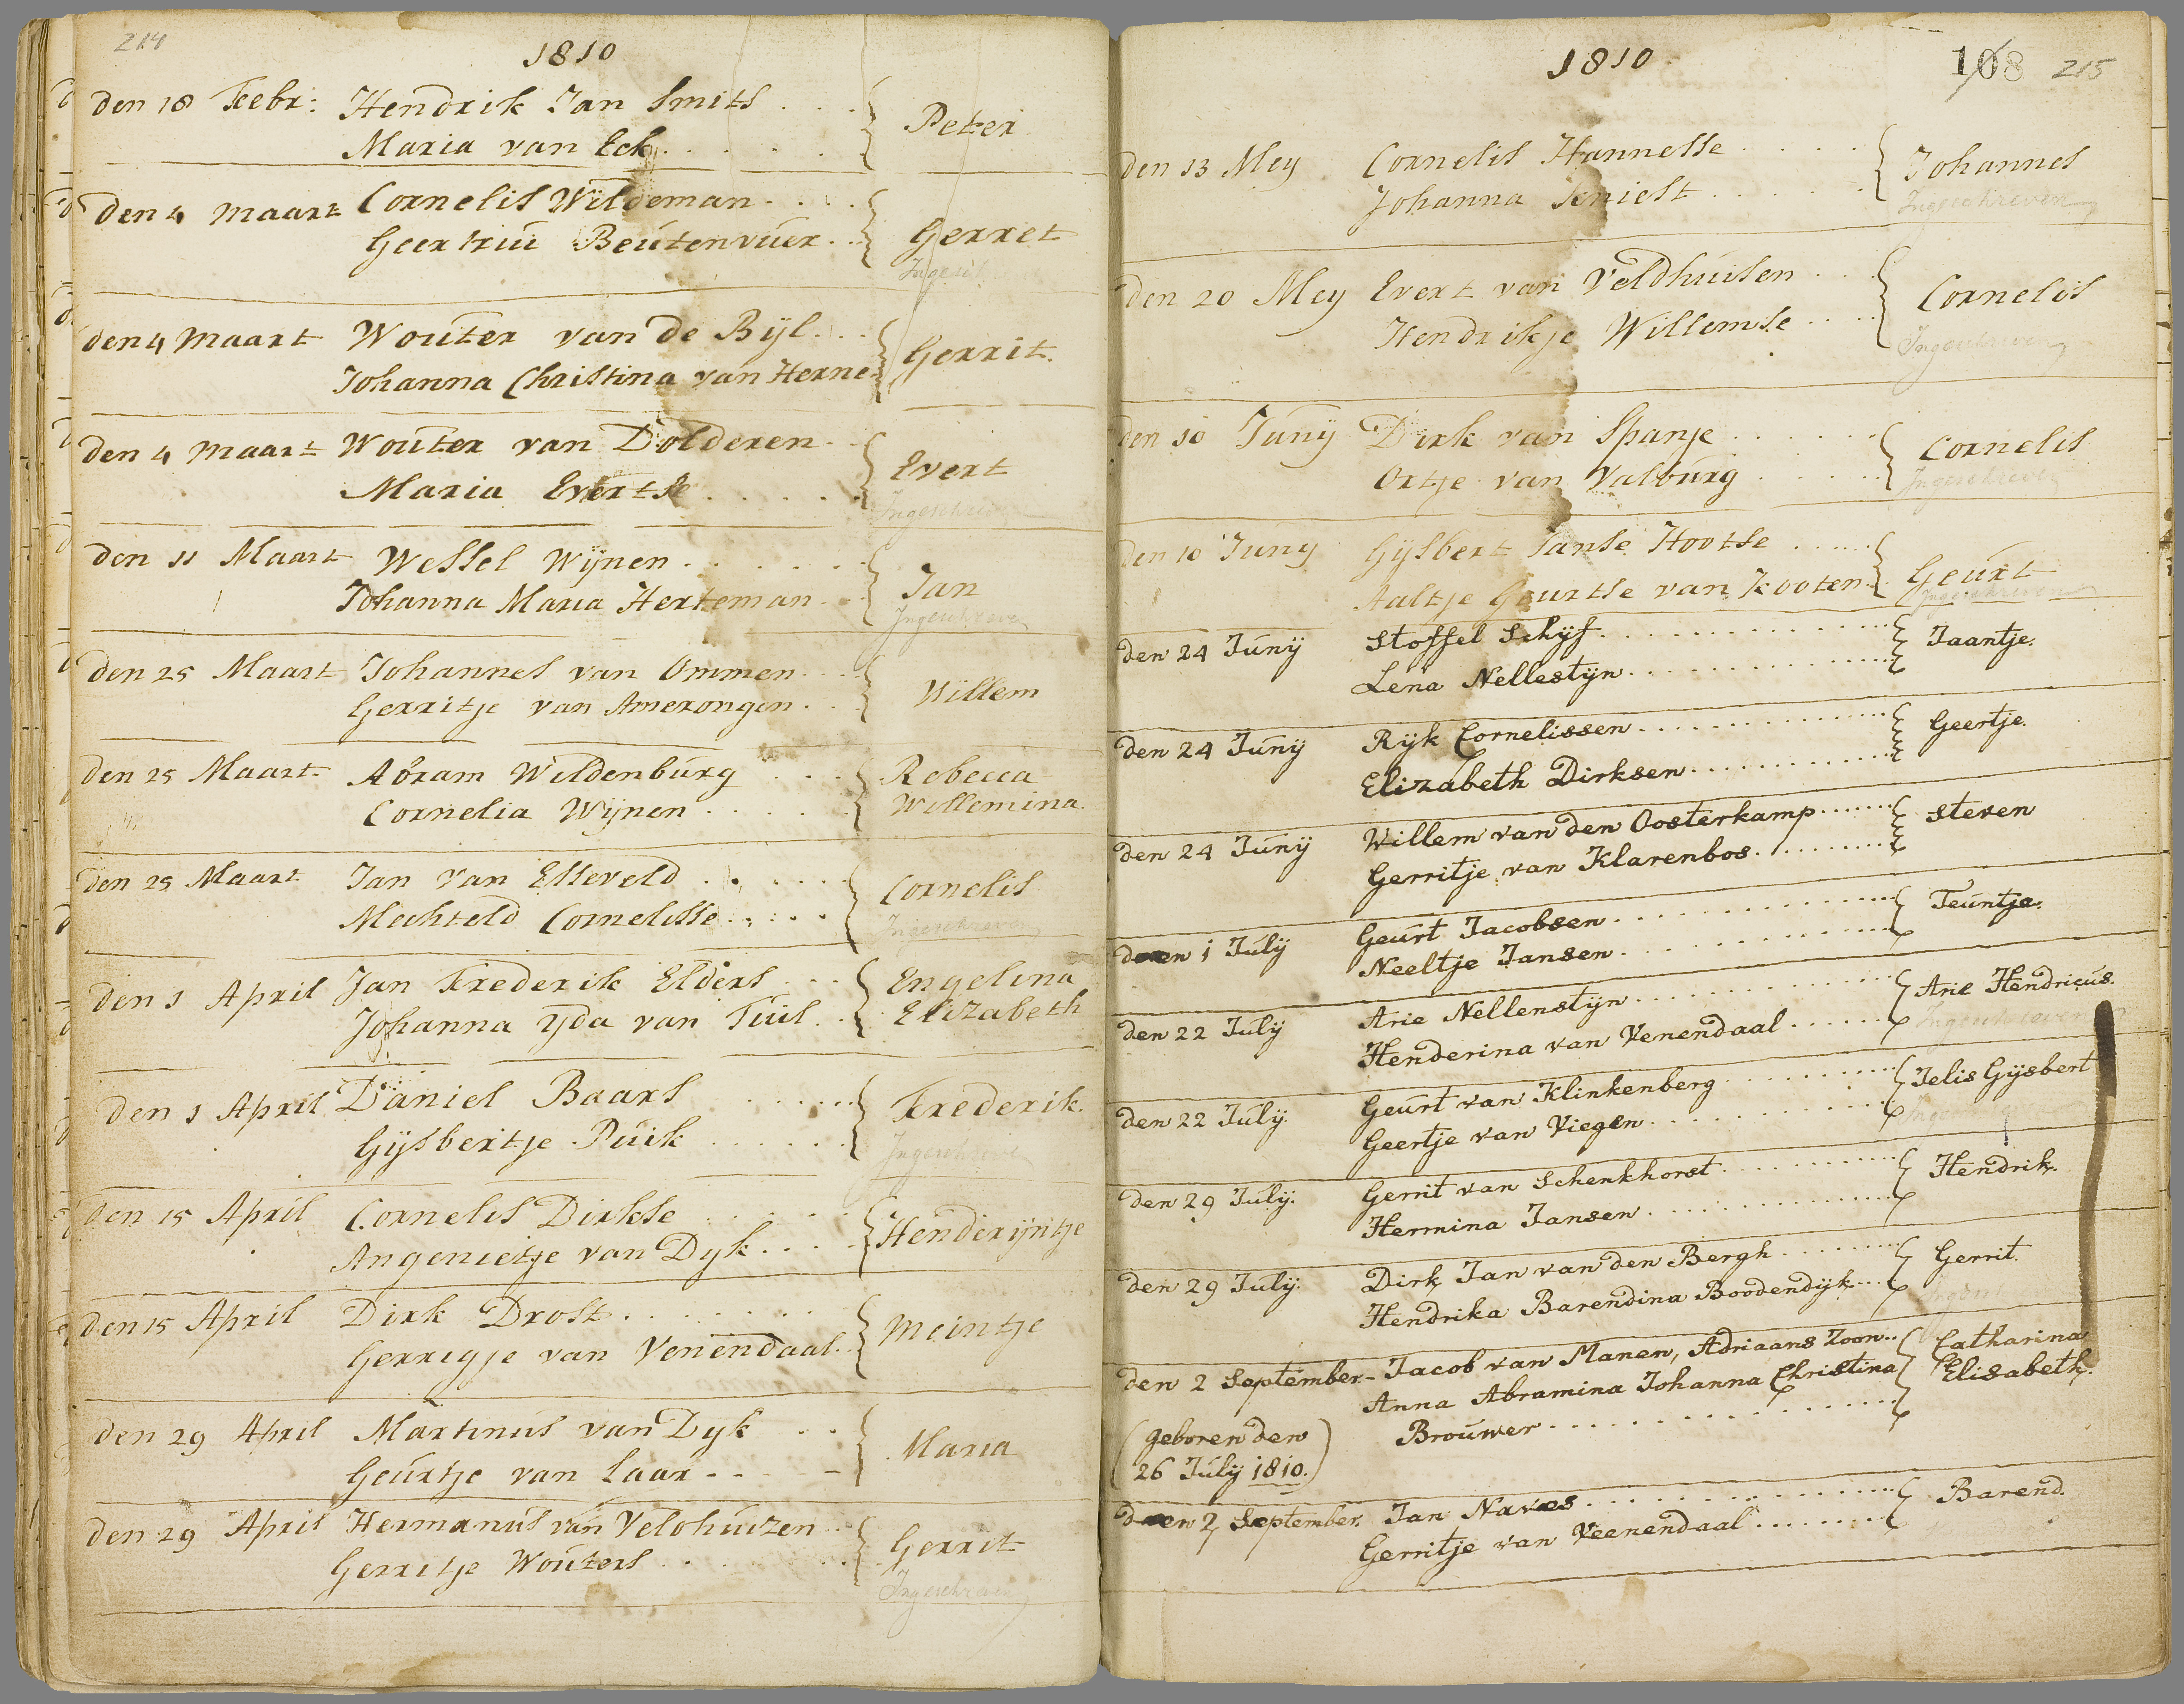 214
1810
den 18 Febr: Hendrik Jan Smits . . . Peter
Maria van Eck . . . . . .
den 4 Maart Cornelis Wildeman . . . . Gerret
Geertrui Beutenvuer . . .
den 4 Maart Wouter van de Bijl . . . Gerrit.
Johanna Christina van Herne
den 4 Maart Wouter van Dolderen . . Evert
Maria Evertse . . . . . .
Ingeschreven
den 11 Maart Wessel Wijnen . . . . . . . Jan
Johanna Maria Herteman . . .
Ingeschreven
den 25 Maart Johannes van Ommen . . . Willem
Gerritje van Amerongen . . .
den 25 Maart Abram Wildenburg . . . Rebecca
Cornelia Wijnen . . . . . . Willemina
den 25 Maart Jan van Esseveld . . . . . . Cornelis
Mechteld Cornelisse . . . . .
Ingeschreven
den 1 April Jan Frederik Elders . . . Engelina
Johanna Yda van Tuil . . Elizabeth
den 1 April Daniel Baars . . . . . . Frederik.
Gijsbertje Puik . . . . . .
Ingeschreven
den 15 April Cornelis Dirkse . . . . . Henderijntje
Angenietje van Dyk . . . .
den 15 April Dirk Drost . . . . . . . Meintje
Gerregje van Venendaal . .
den 29 April Martinus van Dyk . . . Maria
Geurtje van Laar - - - -
den 29 April Hermanus van Veldhuizen . . Gerrit
Gerritje Wouters . . . . . .
Ingeschreven
1810
108 215
den 13 Mey Cornelis Hannesse . . . . . Johannes
Johanna . . . . . .
Ingeschreven
den 20 Mey Evert van Veldhuisen . . . Cornelis
Hendrikje Willemse . . . .
Ingeschreven
den 10 Junij Dirk van Spanje . . . . . . . Cornelis
Ortje van Valburg . . . . . .
Ingeschreven
den 10 Juny Gijsbert Janse Hootse . . . . . . Geurt
Aaltje Geurtse van Kooten
Ingeschreven
den 24 Junij Stoffel Schijf . . . . . . . . . . . . Jaantje.
Lena Nellestijn . . . . . . . . . . . .
den 24 Junij Rijk Cornelissen . . . . . . . . . . . . Geertje.
Elizabeth Dirksen . . . . . . . . . . . .
den 24 Junij Willem van den Oosterkamp . . . . . . Steven
Gerritje van Klarenbos . . . . . . . . . .
den 1 Julij Geurt Jacobsen . . . . . . . . . . . . Teuntje.
Neeltje Jansen . . . . . . . . . . . .
den 22 Julij Arie Nellenstijn . . . . . . . . . . . . Arie Hendricus.
Henderina van Venendaal . . . . . . .
Ingeschreven
den 22 Julij Geurt van Klinkenberg . . . . . . . . . . Jelis Gijsbert
Geertje van Viegen . . . . . . . . . . . .
den 29 Julij. Gerrit van Schenkhorst . . . . . . . . . . Hendrik.
Hermina Jansen . . . . . . . . . . . .
den 29 Julij. Dirk Jan van den Bergh . . . . . . . . . Gerrit
Hendrika Barendina Boodendijk . . .
den 2 September - Jacob van Manen, Adriaans Zoon . . Catharina
Anna Abramina Johanna Christina Elisabeth.
(geboren den Brouwer . . . . . . . . . . . .
26 Julij 1810.)
den 2 September. Jan Naves . . . . . . . . . . . . Barend.
Gerritje van Veenendaal . . . . . . . .